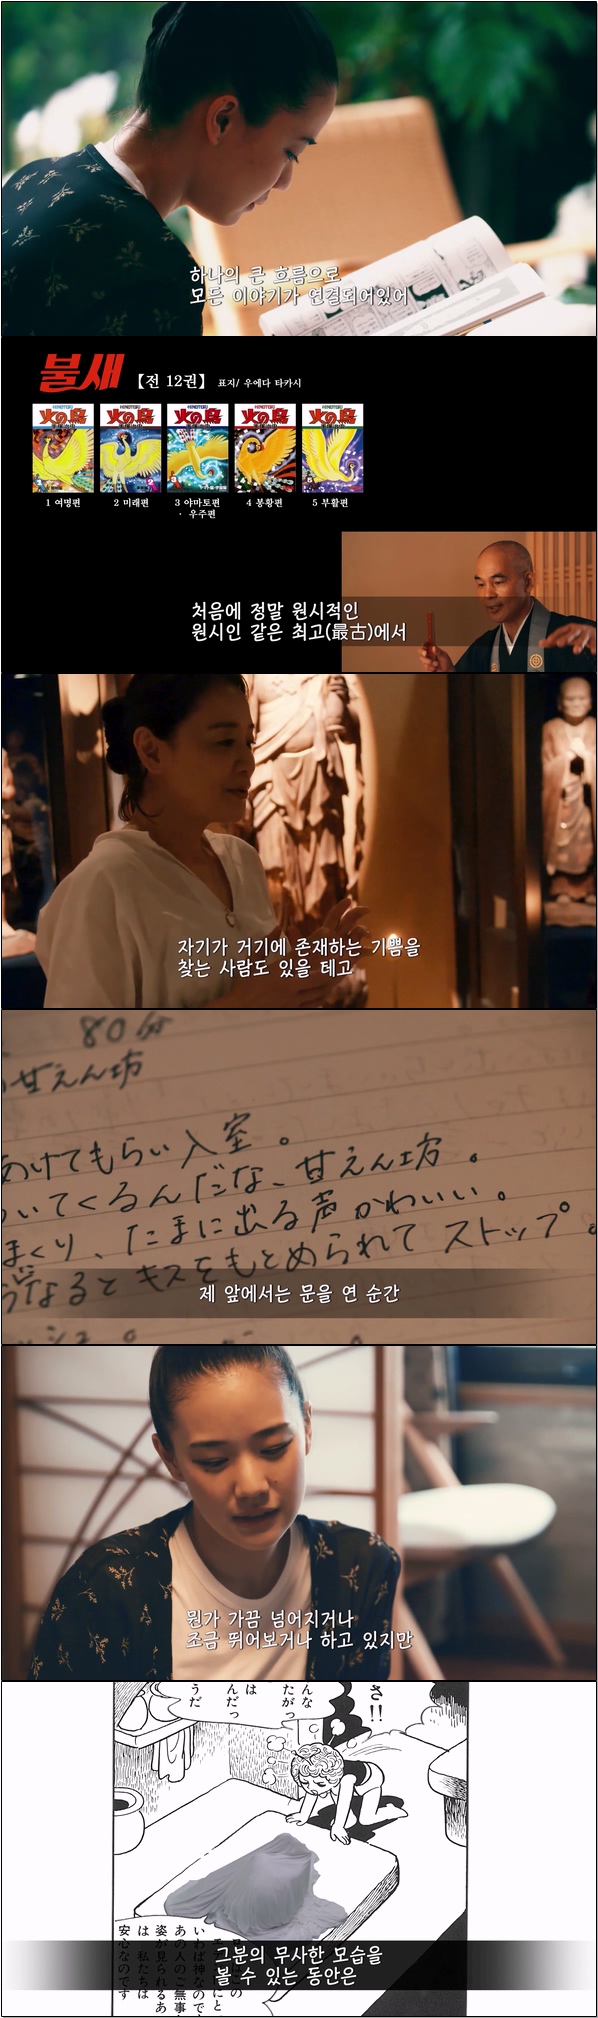 하나의 큰 흐름으로
모든 이야기가 연결되어있어
불새 【전 12권】 표지/ 우에다 타카시
火の鳥 火の鳥 火の鳥 火の鳥 火の鳥
1 여명편 2 미래편 3 야마토편 4 봉황편 5 부활편
· 우주편
처음에 정말 원시적인
원시인 같은 최고(最古)에서
자기가 거기에 존재하는 기쁨을
찾는 사람도 있을 테고
80分
甘えん坊
あけてもらい入室。
いてくるんだな、甘えん坊。
まくり、たまに出る声かわいい。
なるとキスをもとめられてストップ。
제 앞에서는 문을 연 순간
뭔가 가끔 넘어지거나
조금 뛰어보거나 하고 있지만
さ!!
んな
たがっ
は
んだっ
うだ
いわば神なので
あの人のご無事
姿が見られるあ
は 私たちは
安心なのです
그분의 무사한 모습을
볼 수 있는 동안은